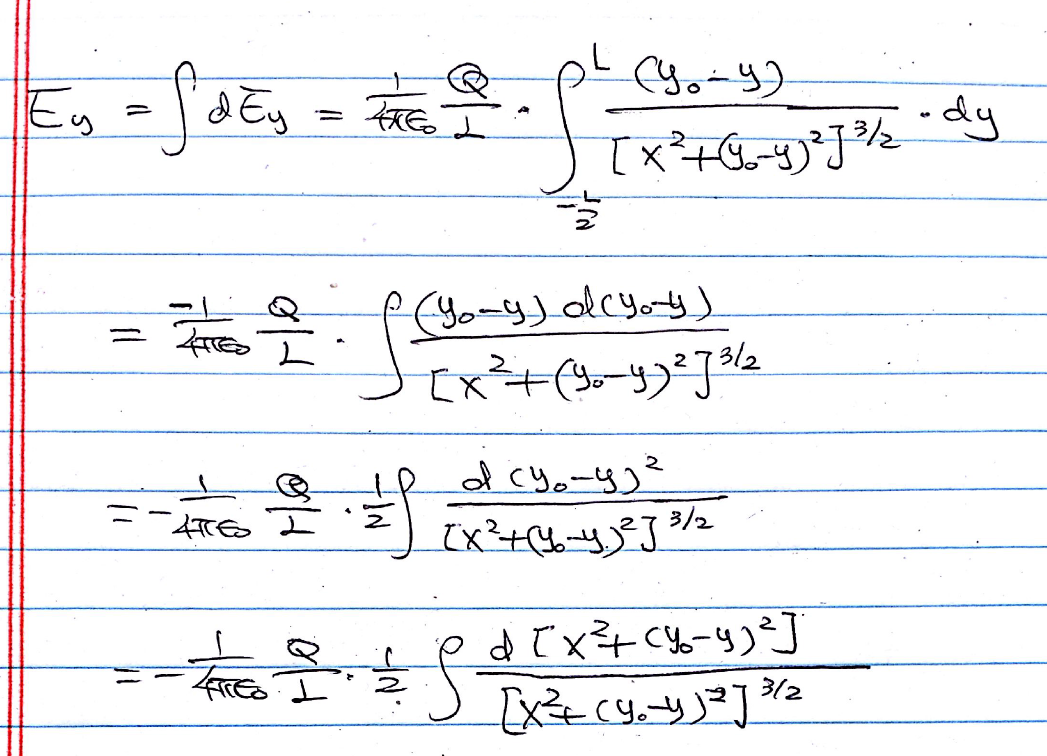 E_y = ∫ dE_y = 1/(4πε₀) Q/L · ∫_{-L/2}^{L} (y₀-y)/[x²+(y₀-y)²]^{3/2} · dy
= -1/(4πε₀) Q/L · ∫ (y₀-y) d(y₀-y)/[x²+(y₀-y)²]^{3/2}
= - 1/(4πε₀) Q/L · 1/2 ∫ d(y₀-y)²/[x²+(y₀-y)²]^{3/2}
= - 1/(4πε₀) Q/L · 1/2 ∫ d[x²+(y₀-y)²]/[x²+(y₀-y)²]^{3/2}